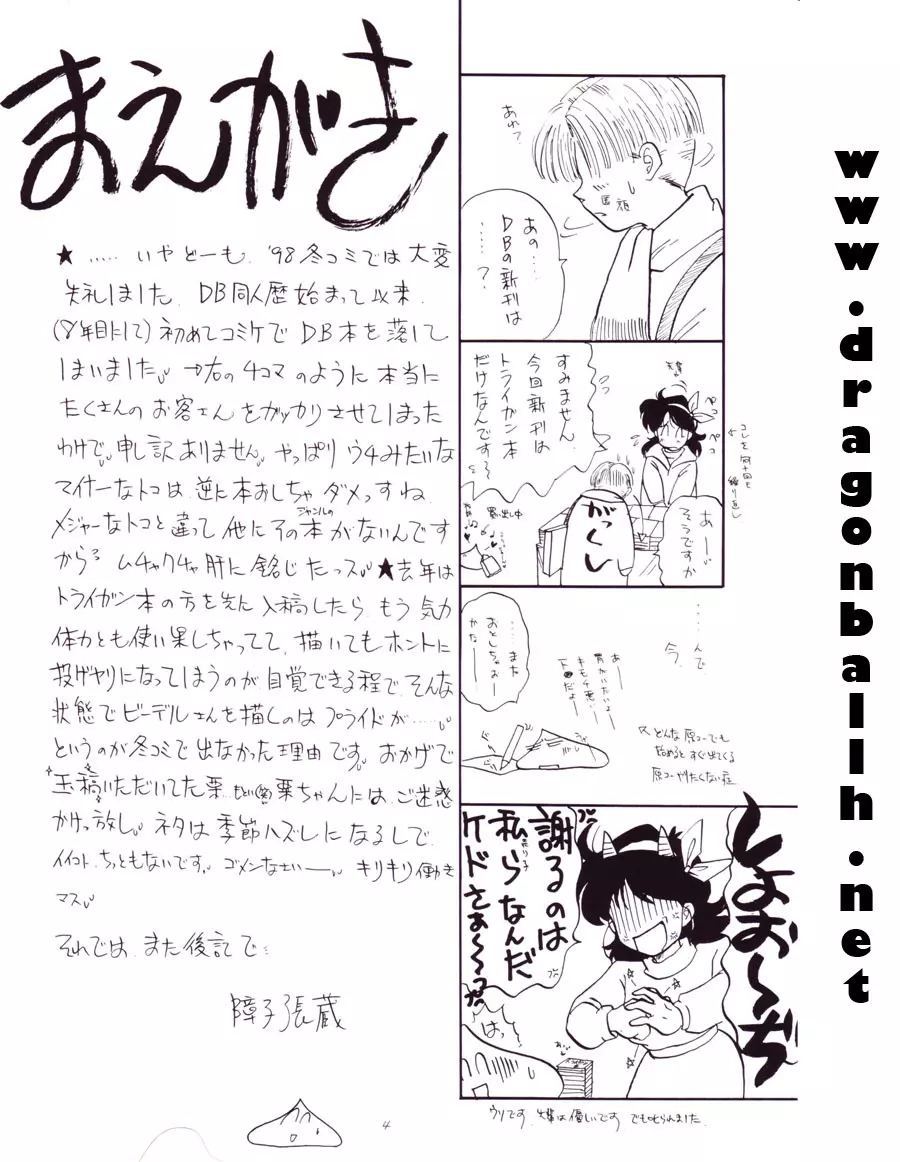 まえがき
★ ..... いやどーも、'98冬コミでは大変
失礼しました、DB同人歴始まって以来、
(8年目にして)初めてコミケでDB本を落して
しまいました。→右の4コマのように本当に
たくさんのお客さんをガッカリさせてしまった
わけで。申し訳ありません。やっぱりウチみたいな
マイナーなトコは逆に本おとしちゃダメっすね、
メジャーなトコと違って他にそのジャンルの本がないんです
から。ムチャクチャ肝に銘じたっス。★去年は
トライガン本の方を先に入稿したら、もう気力
体力とも使い果しちゃってて、描いてもホントに
投げヤリになってしまうのが自覚できる程で、そんな
状態でビーデルさんを描くのはプライドが.....。
というのが冬コミで出なかった理由です。おかげで
玉稿いただいてた栗ちゃんには、ご迷惑
かけっ放し。ネタは季節ハズレになるしで
イイコト、ちっともないです。ゴメンなさいー。キリキリ働き
マス。
それでは、また後記で
障子張蔵
4
あれ?
あの....
DBの新刊は
.....?
すみません
今回新刊は
トライガン本
だけなんです~
ペコ
ペコ
コレを何十回も
繰り返し
あーー
そうですか
がっくし
......んで
今、
......また
おとしちゃおー
かなー
あーー
胃がいたいよーー
キモチ悪いーー
だよーー
どんな原コーでも
始めるとすぐ出てくる
原コーやりたくない症
しょお~ぢ
謝るのは
私らなんだ
ケドさぁ~~っ
はっ
ウソです。先輩は優しいです でも叱られました
www.dragonballh.net